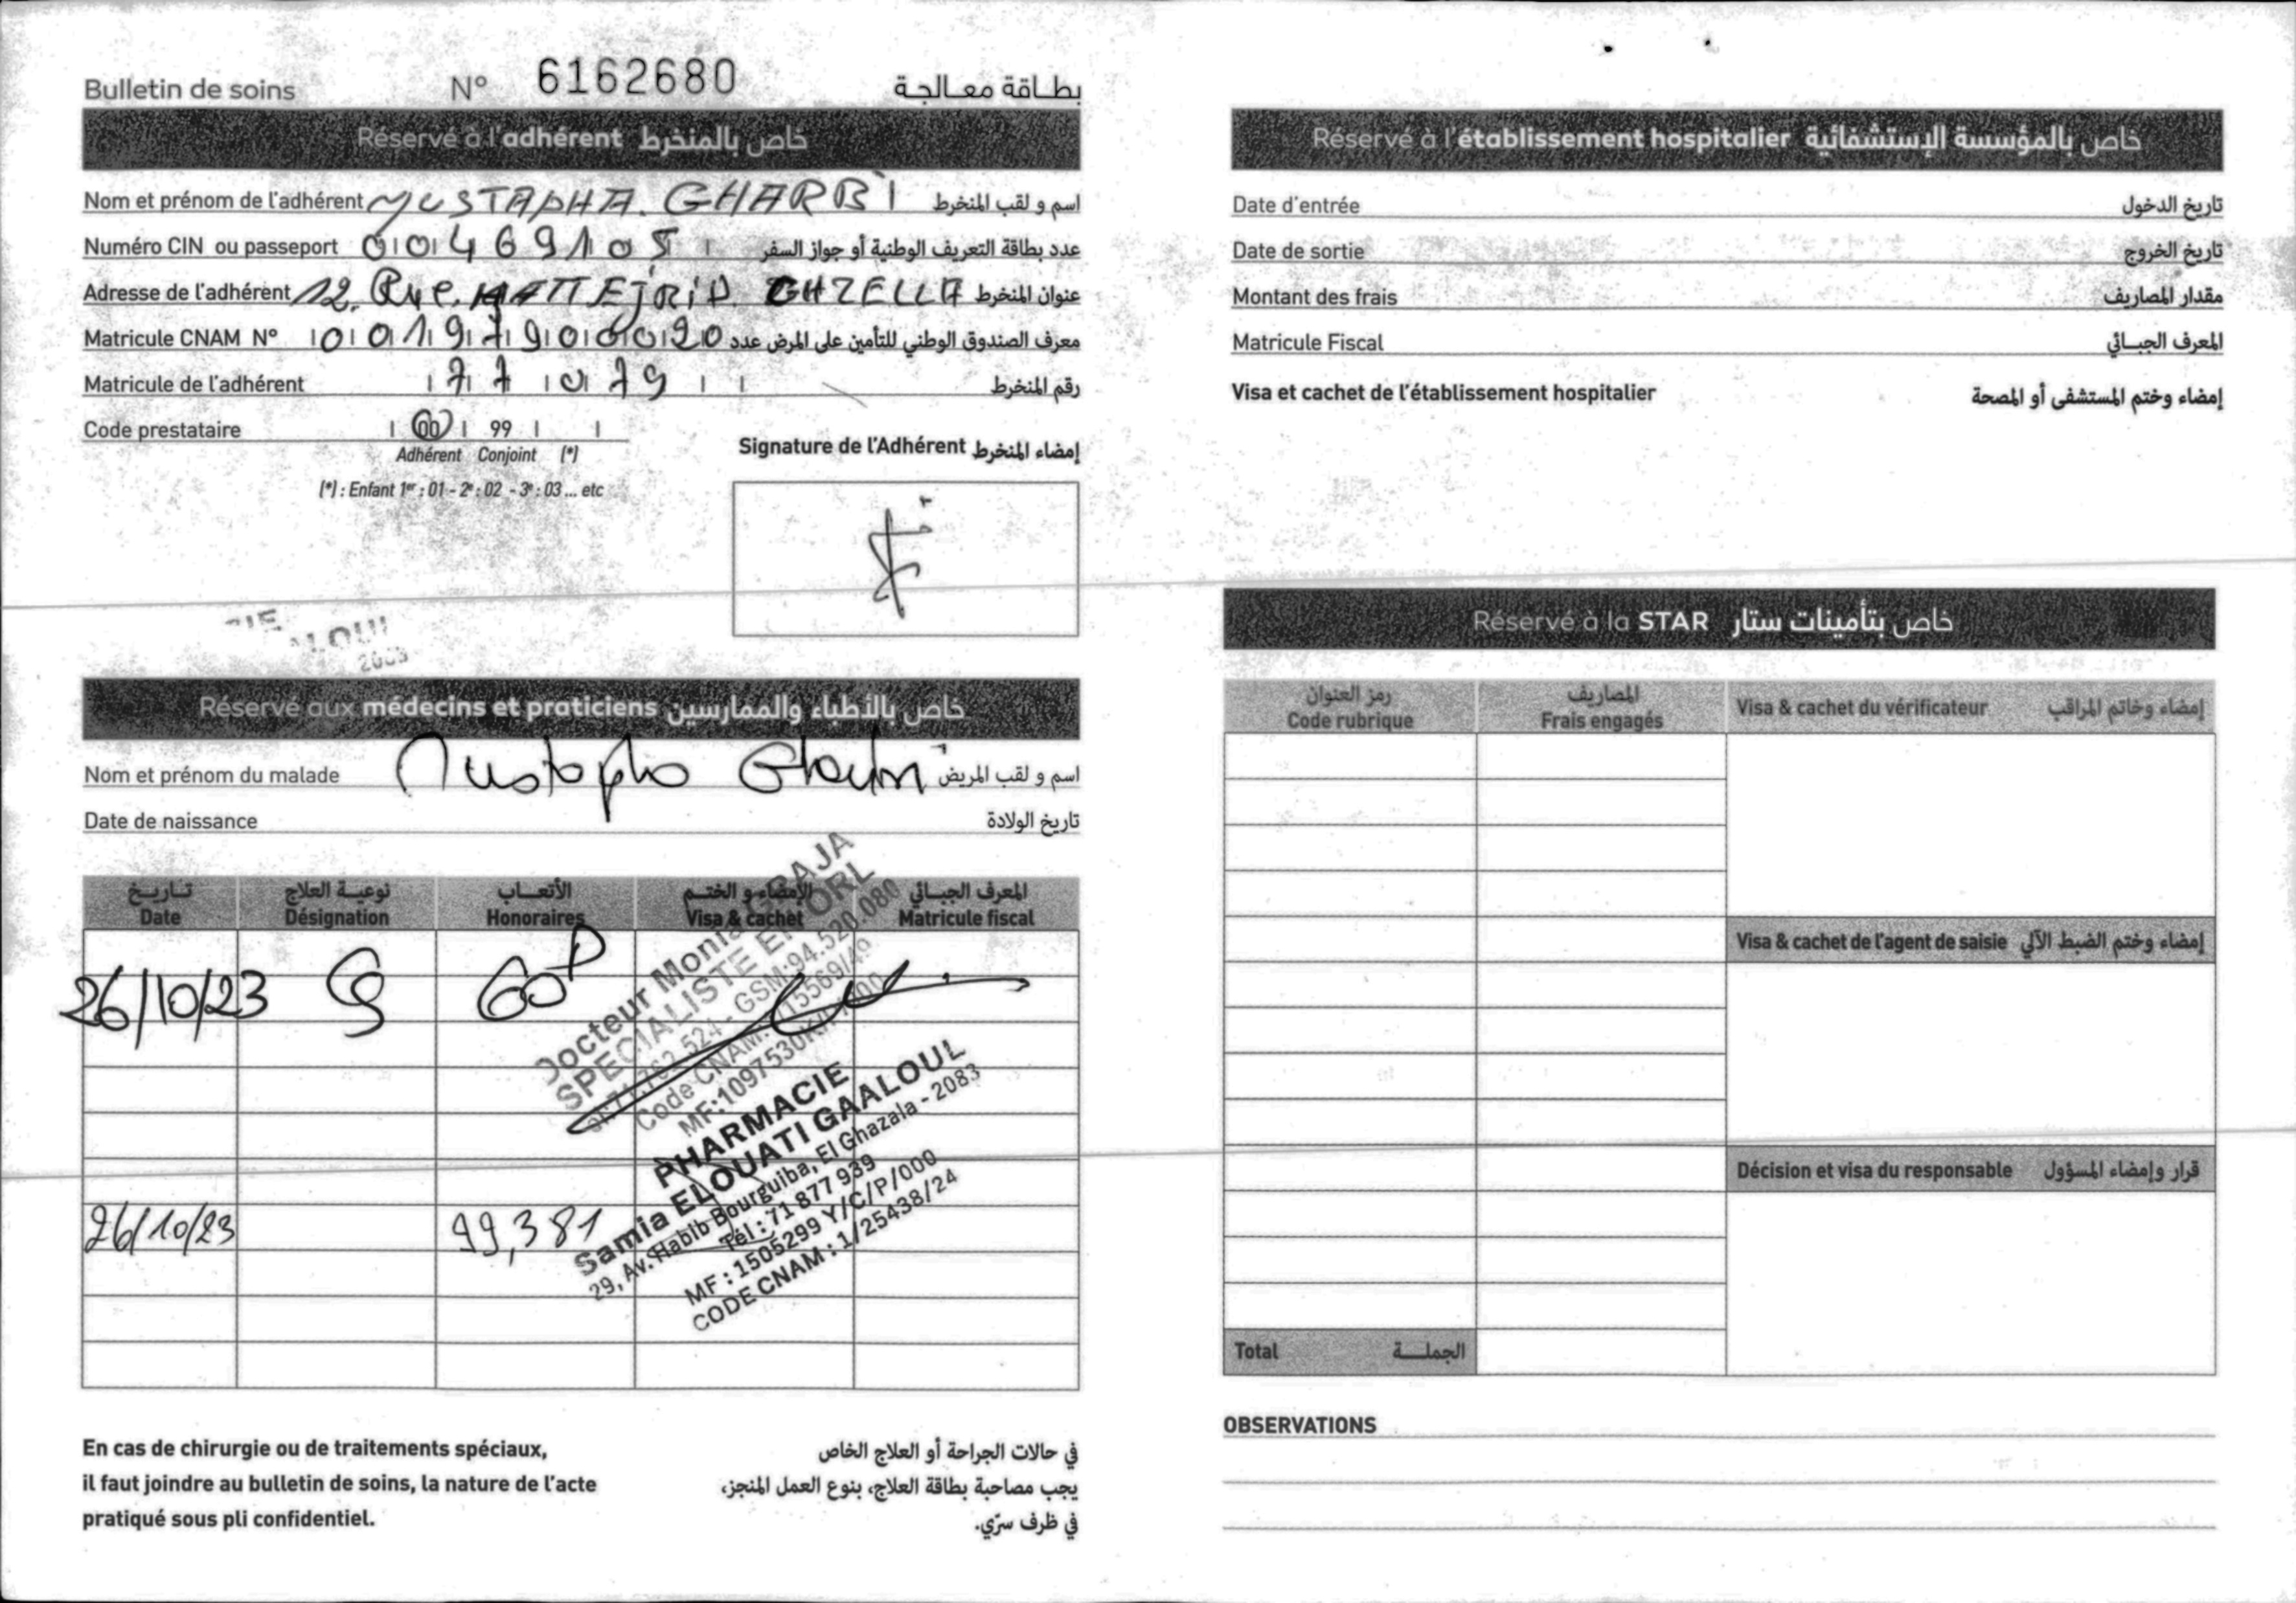 Bulletin de soins N° 6162680 بطاقة معالجة
Réservé à l'adhérent خاص بالمنخرط
Nom et prénom de l'adhérent MUSTAPHA. GHARBI اسم و لقب المنخرط
Numéro CIN ou passeport 00469105 عدد بطاقة التعريف الوطنية أو جواز السفر
Adresse de l'adhérent 12. Rue. GHZELLA عنوان المنخرط
Matricule CNAM N° معرف الصندوق الوطني للتأمين على المرض عدد
Matricule de l'adhérent 77079 رقم المنخرط
Code prestataire 00 99
Adhérent Conjoint (*)
(*) : Enfant 1er : 01 - 2e : 02 - 3e : 03 ... etc
Signature de l'Adhérent إمضاء المنخرط
Réservé aux médecins et praticiens خاص بالأطباء والممارسين
Nom et prénom du malade Mustapha Gharbi اسم و لقب المريض
Date de naissance تاريخ الولادة
تاريخ نوعية العلاج الأتعاب الإمضاء و الختم المعرف الجبائي
Date Désignation Honoraires Visa & cachet Matricule fiscal
26/10/23 60D
Docteur
SPECIALISTE EN ORL
GSM:94.520.080
Code CNAM:
PHARMACIE
Samia ELOUATI GAALOUL
29, Av. Habib Bourguiba, El Ghazala - 2083
Tél : 71 877 939
MF : 1505299 Y/C/P/000
CODE CNAM : 1/25438/24
26/10/23 99,381
En cas de chirurgie ou de traitements spéciaux,
il faut joindre au bulletin de soins, la nature de l'acte
pratiqué sous pli confidentiel.
في حالات الجراحة أو العلاج الخاص
يجب مصاحبة بطاقة العلاج، بنوع العمل المنجز،
في ظرف سرّي.
Réservé à l'établissement hospitalier خاص بالمؤسسة الإستشفائية
Date d'entrée تاريخ الدخول
Date de sortie تاريخ الخروج
Montant des frais مقدار المصاريف
Matricule Fiscal المعرف الجبائي
Visa et cachet de l'établissement hospitalier إمضاء وختم المستشفى أو المصحة
Réservé à la STAR خاص بتأمينات ستار
رمز العنوان المصاريف
Code rubrique Frais engagés Visa & cachet du vérificateur إمضاء وخاتم المراقب
Visa & cachet de l'agent de saisie إمضاء وختم الضبط الآلي
Décision et visa du responsable قرار وإمضاء المسؤول
Total الجملة
OBSERVATIONS